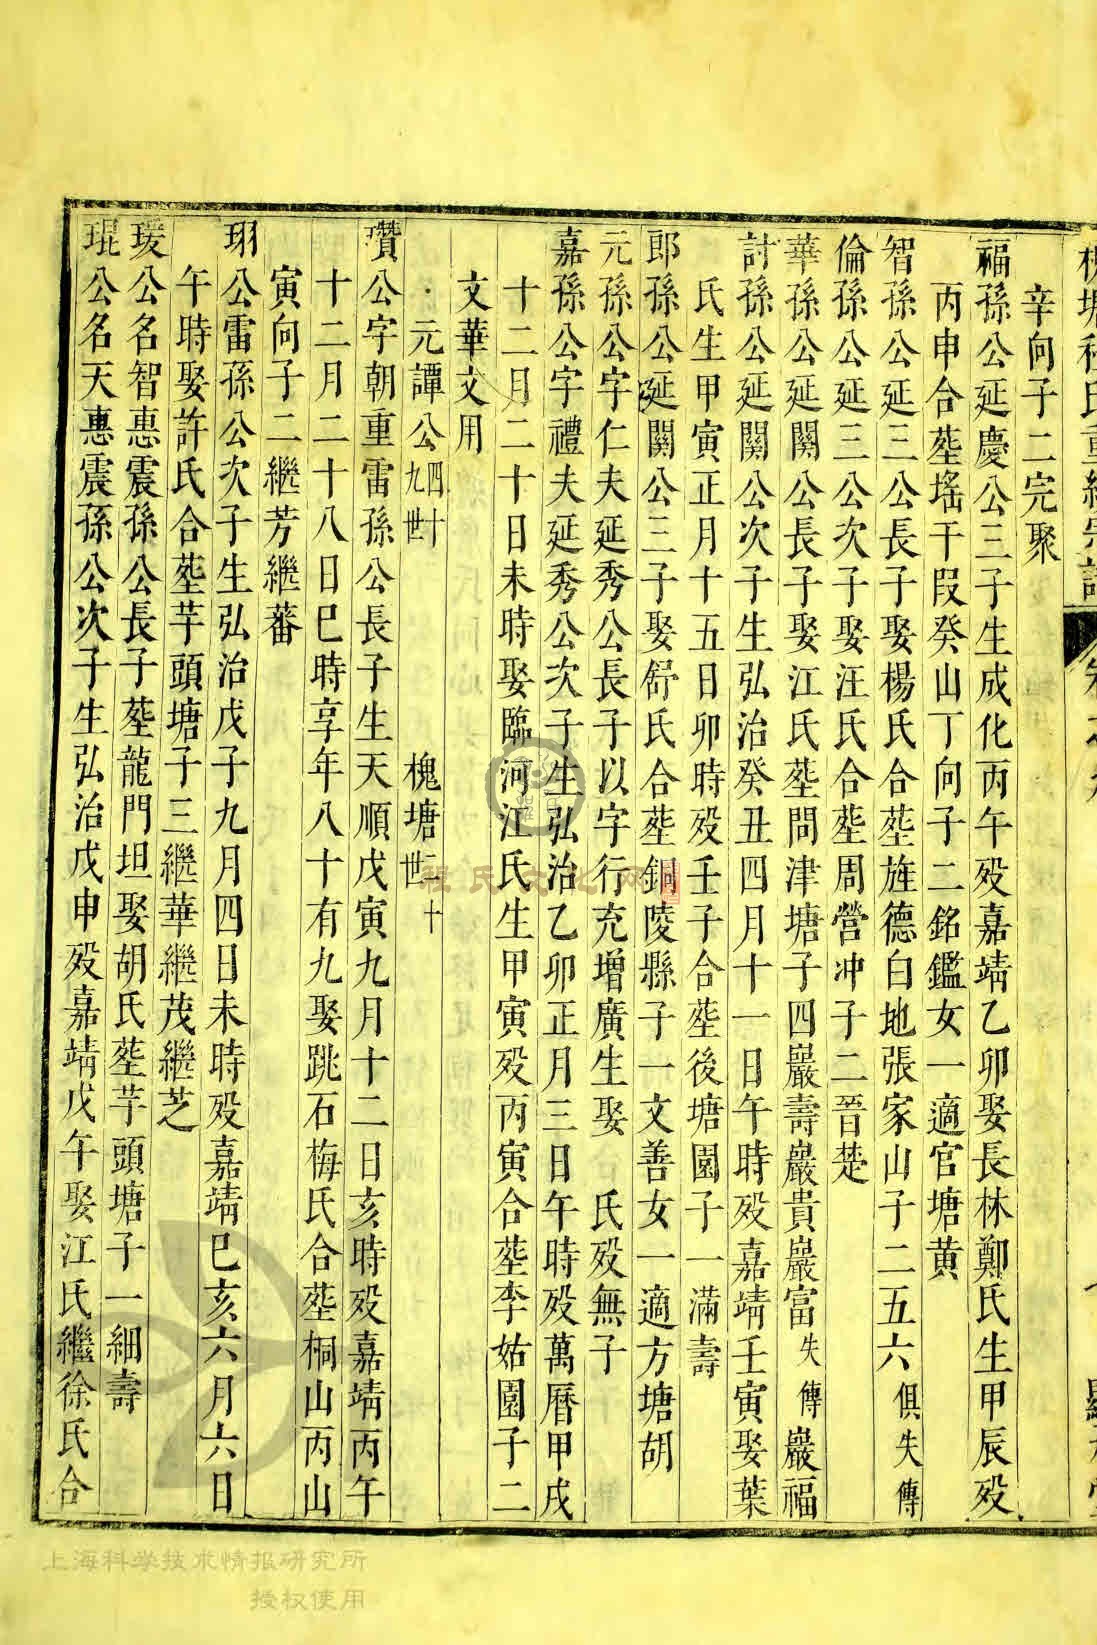 辛向子二完聚
福孫公延慶公三子生成化丙午殁嘉靖乙卯娶長林鄭氏生甲辰殁
丙申合塟瑤干段癸山丁向子二銘鑑女一適官塘黃
智孫公延三公長子娶楊氏合塟旌德白地張家山子二五六俱失傳
倫孫公延三公次子娶汪氏合塟周營冲子二晉楚
華孫公延闗公長子娶江氏塟問津塘子四巖壽巖貴巖富失傳巖福
討孫公延闗公次子生弘治癸丑四月十一日午時殁嘉靖壬寅娶葉
氏生甲寅正月十五日卯時殁壬子合塟後塘園子一滿壽
郎孫公延闗公三子娶舒氏合塟銅陵縣子一文善女一適方塘胡
元孫公字仁夫延秀公長子以字行充增廣生娶 氏殁無子
嘉孫公字禮夫延秀公次子生弘治乙卯正月三日午時殁萬曆甲戌
十二日二十日未時娶臨河江氏生甲寅殁丙寅合塟李姑園子二
文華文用
元譚公四十九世 槐塘二十世
瓚公字朝重雷孫公長子生天順戊寅九月十二日亥時殁嘉靖丙午
十二月二十八日巳時享年八十有九娶跳石梅氏合塟桐山丙山
寅向子二繼芳繼蕃
珝公雷孫公次子生弘治戊子九月四日未時殁嘉靖巳亥六月六日
午時娶許氏合塟芋頭塘子三繼華繼茂繼芝
瑗公名智惠震孫公長子塟龍門坦娶胡氏塟芋頭塘子一細壽
琨公名天惠震孫公次子生弘治戊申殁嘉靖戊午娶江氏繼徐氏合
程氏文化网
上海科学技术情报研究所
授权使用